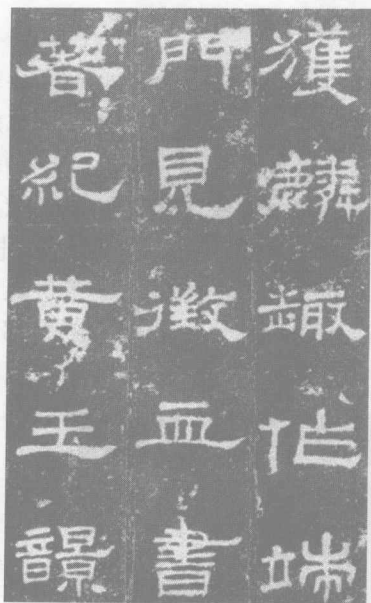 獲麟趣作端
門見徵血書
著紀黃玉